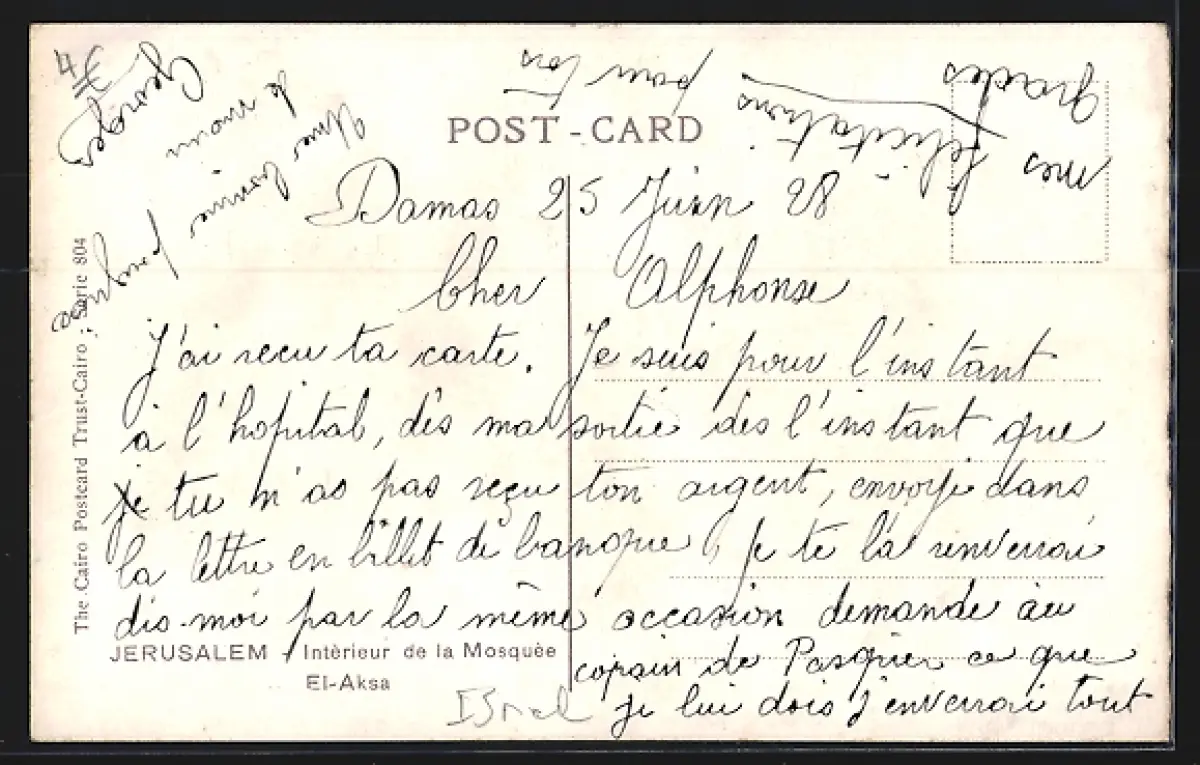 POST-CARD
Damas 25 Juin 28
Cher Alphonse
J'ai recu ta carte. Je suis pour l'instant
à l'hopital, dès ma sortie dès l'instant que
je tu m'as pas reçu ton argent, envoyé dans
la lettre en billet de banque, je te la renverrai
dis-moi par la même occasion demande au
copain de Pasquier ce que
je lui dois j'enverrai tout
mes félicitations
grades
pour tes
Une bonne poignée
de main
Georges
The Cairo Postcard Trust-Cairo; Serie 804
JERUSALEM Intèrieur de la Mosquèe
El-Aksa